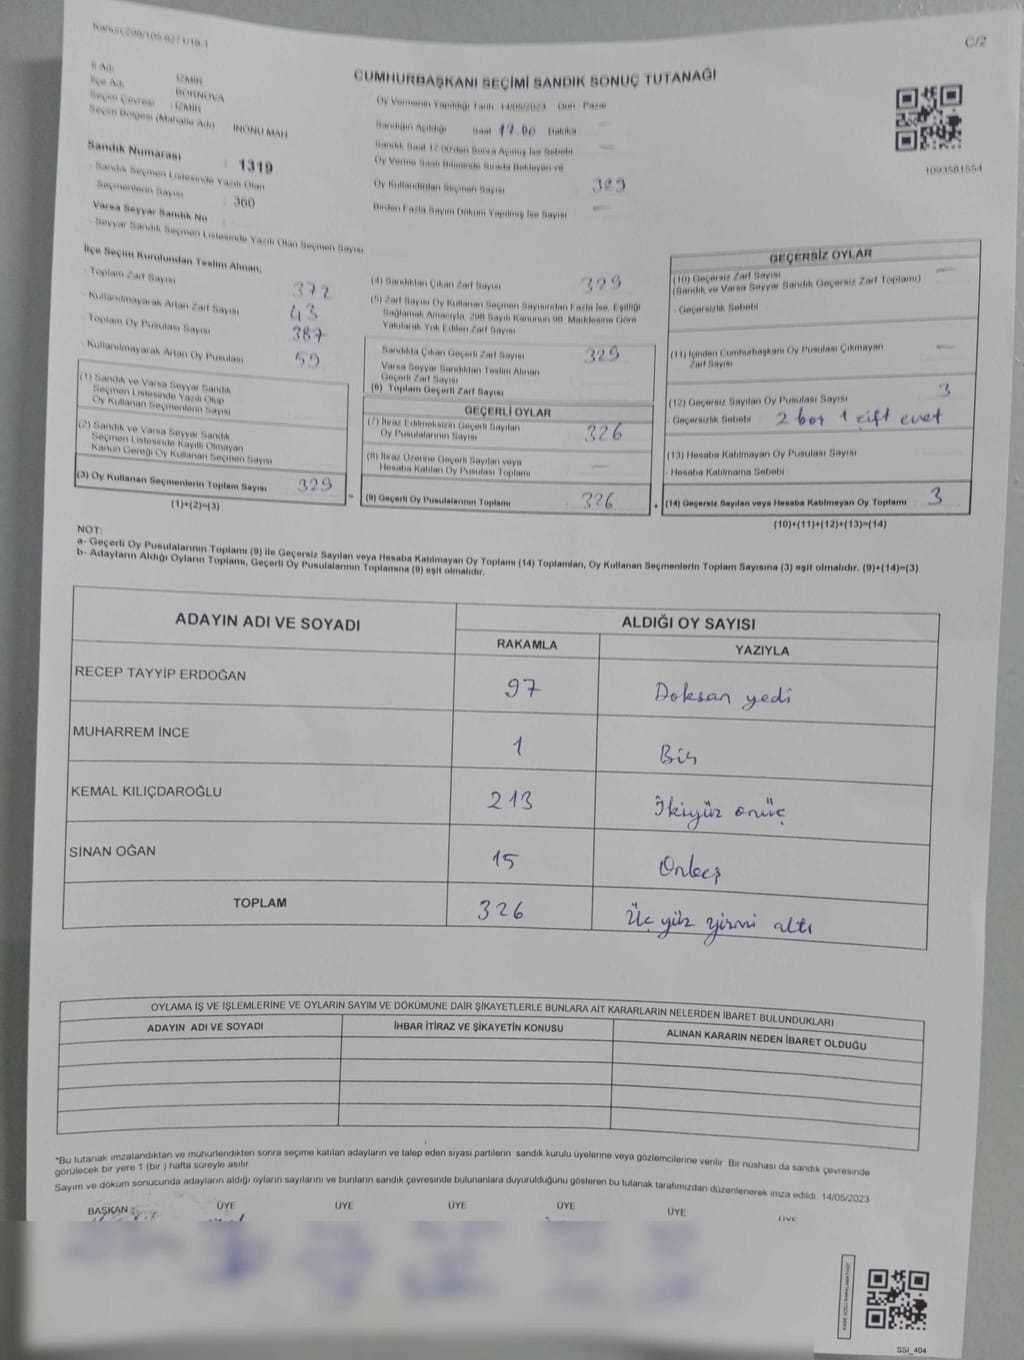 Kanun:298/105,6271/18-1
C/2
CUMHURBAŞKANI SEÇİMİ SANDIK SONUÇ TUTANAĞI
İl Adı : İZMİR
İlçe Adı : BORNOVA
Seçim Çevresi : İZMİR
Seçim Bölgesi (Mahalle Adı) : İNÖNÜ MAH
Sandık Numarası : 1319
- Sandık Seçmen Listesinde Yazılı Olan
Seçmenlerin Sayısı : 360
Varsa Seyyar Sandık No
- Seyyar Sandık Seçmen Listesinde Yazılı Olan Seçmen Sayısı
Oy Vermenin Yapıldığı Tarih 14/05/2023 Gün Pazar
Sandığın Açıldığı Saat 17.00 Dakika —
Sandık Saat 17:00'den Sonra Açılmış İse Sebebi —
Oy Verme Saati Bitiminde Sırada Bekleyen ve
Oy Kullandırılan Seçmen Sayısı 329
Birden Fazla Sayım Döküm Yapılmış İse Sayısı —
1093581554
İlçe Seçim Kurulundan Teslim Alınan;
- Toplam Zarf Sayısı 372
- Kullanılmayarak Artan Zarf Sayısı 43
- Toplam Oy Pusulası Sayısı 387
- Kullanılmayarak Artan Oy Pusulası 59
(1) Sandık ve Varsa Seyyar Sandık
Seçmen Listesinde Yazılı Olup
Oy Kullanan Seçmenlerin Sayısı
(2) Sandık ve Varsa Seyyar Sandık
Seçmen Listesinde Kayıtlı Olmayan
Kanun Gereği Oy Kullanan Seçmen Sayısı
(3) Oy Kullanan Seçmenlerin Toplam Sayısı 329
(1)+(2)=(3)
(4) Sandıktan Çıkan Zarf Sayısı 329
(5) Zarf Sayısı Oy Kullanan Seçmen Sayısından Fazla İse, Eşitliği
Sağlamak Amacıyla, 298 Sayılı Kanunun 98. Maddesine Göre
Yakılarak Yok Edilen Zarf Sayısı
Sandıkta Çıkan Geçerli Zarf Sayısı 329
Varsa Seyyar Sandıktan Teslim Alınan
Geçerli Zarf Sayısı
(6) Toplam Geçerli Zarf Sayısı
GEÇERLİ OYLAR
(7) İtiraz Edilmeksizin Geçerli Sayılan
Oy Pusulalarının Sayısı 326
(8) İtiraz Üzerine Geçerli Sayılan veya
Hesaba Katılan Oy Pusulası Toplamı —
= (9) Geçerli Oy Pusulalarının Toplamı 326 +
GEÇERSİZ OYLAR
(10) Geçersiz Zarf Sayısı —
(Sandık ve Varsa Seyyar Sandık Geçersiz Zarf Toplamı)
- Geçersizlik Sebebi :
(11) İçinden Cumhurbaşkanı Oy Pusulası Çıkmayan
Zarf Sayısı —
(12) Geçersiz Sayılan Oy Pusulası Sayısı 3
- Geçersizlik Sebebi : 2 boş 1 çift evet
(13) Hesaba Katılmayan Oy Pusulası Sayısı
- Hesaba Katılmama Sebebi :
(14) Geçersiz Sayılan veya Hesaba Katılmayan Oy Toplamı 3
(10)+(11)+(12)+(13)=(14)
NOT:
a- Geçerli Oy Pusulalarının Toplamı (9) ile Geçersiz Sayılan veya Hesaba Katılmayan Oy Toplamı (14) Toplamları, Oy Kullanan Seçmenlerin Toplam Sayısına (3) eşit olmalıdır. (9)+(14)=(3)
b- Adayların Aldığı Oyların Toplamı, Geçerli Oy Pusulalarının Toplamına (9) eşit olmalıdır.
ADAYIN ADI VE SOYADI ALDIĞI OY SAYISI
RAKAMLA YAZIYLA
RECEP TAYYİP ERDOĞAN 97 Doksan yedi
MUHARREM İNCE 1 Bir
KEMAL KILIÇDAROĞLU 213 İkiyüz onüç
SİNAN OĞAN 15 Onbeş
TOPLAM 326 Üç yüz yirmi altı
OYLAMA İŞ VE İŞLEMLERİNE VE OYLARIN SAYIM VE DÖKÜMÜNE DAİR ŞİKAYETLERLE BUNLARA AİT KARARLARIN NELERDEN İBARET BULUNDUKLARI
ADAYIN ADI VE SOYADI İHBAR İTİRAZ VE ŞİKAYETİN KONUSU ALINAN KARARIN NEDEN İBARET OLDUĞU
*Bu tutanak imzalandıktan ve mühürlendikten sonra seçime katılan adayların ve talep eden siyasi partilerin sandık kurulu üyelerine veya gözlemcilerine verilir. Bir nüshası da sandık çevresinde
görülecek bir yere 1 (bir ) hafta süreyle asılır
Sayım ve döküm sonucunda adayların aldığı oyların sayılarını ve bunların sandık çevresinde bulunanlara duyurulduğunu gösteren bu tutanak tarafımızdan düzenlenerek imza edildi. 14/05/2023
BAŞKAN ÜYE ÜYE ÜYE ÜYE ÜYE ÜYE
SSI_404